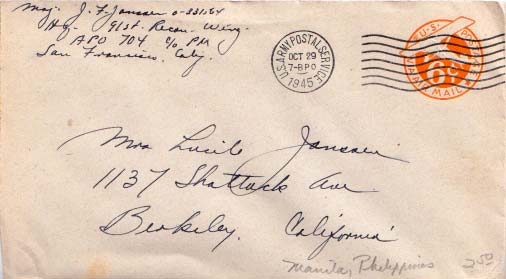 Maj. J. F. Janssen O-331164
Hq. 91st. Recon. Wing.
APO 704 c/o PM
San Francisco, Calif.
U.S. ARMY POSTAL SERVICE
OCT 29
7-BPO
1945
U.S. POSTAGE
6¢
VIA AIR MAIL
Mrs Lucile Janssen
1137 Shattuck Ave
Berkeley, California
Manila, Philippines
2.50